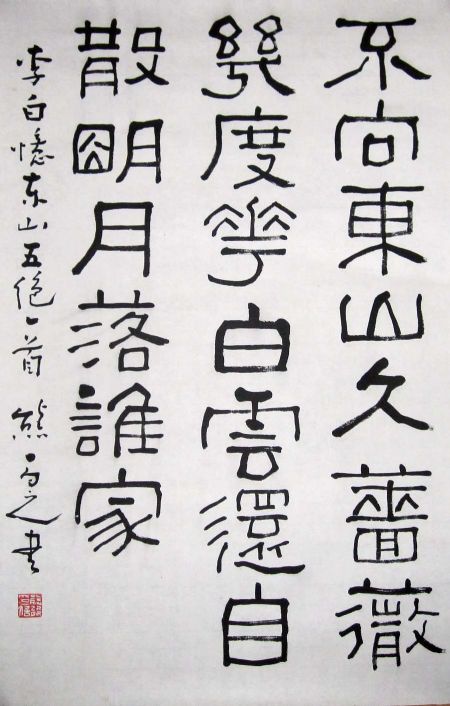 不向東山久薔薇
幾度花白雲還自
散朙月落誰家
李白憶东山五绝一首 熊百之书